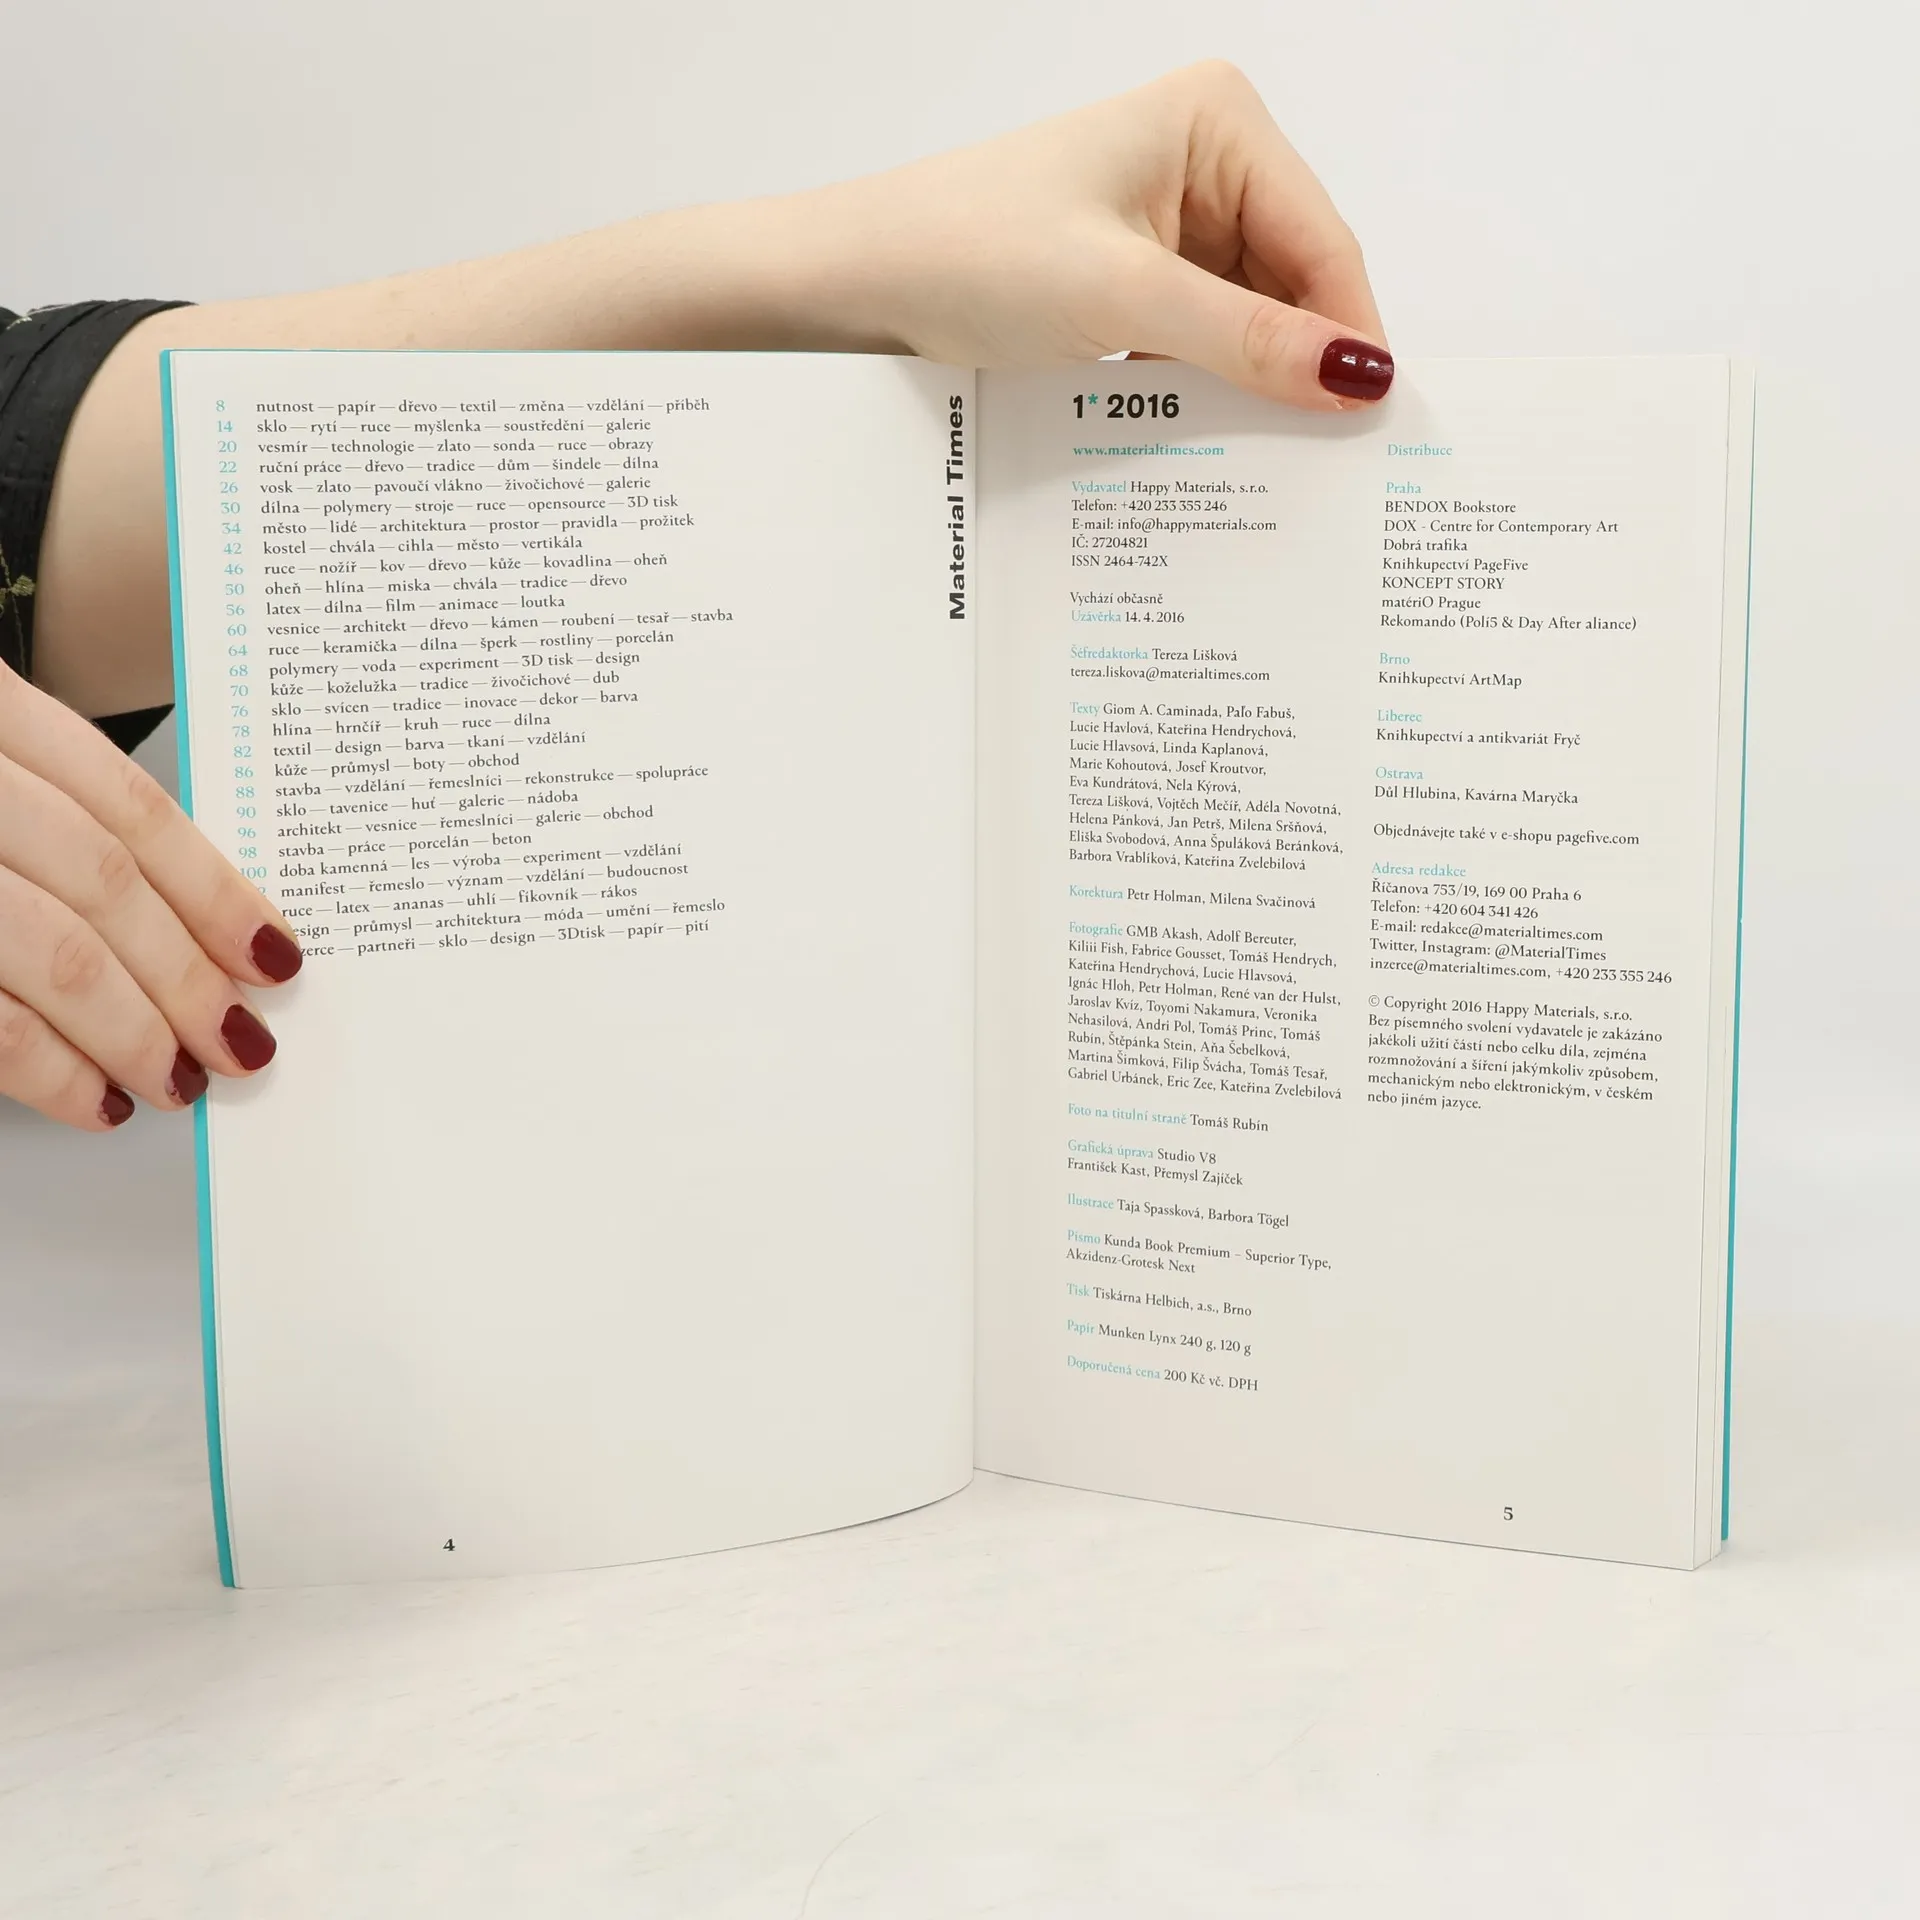 8 nutnost — papír — dřevo — textil — změna — vzdělání — příběh
14 sklo — rytí — ruce — myšlenka — soustředění — galerie
20 vesmír — technologie — zlato — sonda — ruce — obrazy
22 ruční práce — dřevo — tradice — dům — šindele — dílna
26 vosk — zlato — pavoučí vlákno — živočichové — galerie
30 dílna — polymery — stroje — ruce — opensource — 3D tisk
34 město — lidé — architektura — prostor — pravidla — prožitek
42 kostel — chvála — cihla — město — vertikála
46 ruce — nožíř — kov — dřevo — kůže — kovadlina — oheň
50 oheň — hlína — miska — chvála — tradice — dřevo
56 latex — dílna — film — animace — loutka
60 vesnice — architekt — dřevo — kámen — roubení — tesař — stavba
64 ruce — keramička — dílna — šperk — rostliny — porcelán
68 polymery — voda — experiment — 3D tisk — design
70 kůže — koželužka — tradice — živočichové — dub
76 sklo — svícen — tradice — inovace — dekor — barva
78 hlína — hrnčíř — kruh — ruce — dílna
82 textil — design — barva — tkaní — vzdělání
86 kůže — průmysl — boty — obchod
88 stavba — vzdělání — řemeslníci — rekonstrukce — spolupráce
90 sklo — tavenice — huť — galerie — nádoba
96 architekt — vesnice — řemeslníci — galerie — obchod
98 stavba — práce — porcelán — beton
100 doba kamenná — les — výroba — experiment — vzdělání
manifest — řemeslo — význam — vzdělání — budoucnost
ruce — latex — ananas — uhlí — fíkovník — rákos
esign — průmysl — architektura — móda — umění — řemeslo
zerce — partneři — sklo — design — 3Dtisk — papír — pití
4
Material Times
1* 2016
www.materialtimes.com
Vydavatel Happy Materials, s.r.o.
Telefon: +420 233 355 246
E-mail: info@happymaterials.com
IČ: 27204821
ISSN 2464-742X
Vychází občasně
Uzávěrka 14. 4. 2016
Šéfredaktorka Tereza Lišková
tereza.liskova@materialtimes.com
Texty Giom A. Caminada, Paľo Fabuš,
Lucie Havlová, Kateřina Hendrychová,
Lucie Hlavsová, Linda Kaplanová,
Marie Kohoutová, Josef Kroutvor,
Eva Kundrátová, Nela Kýrová,
Tereza Lišková, Vojtěch Mečíř, Adéla Novotná,
Helena Pánková, Jan Petrš, Milena Sršňová,
Eliška Svobodová, Anna Špuláková Beránková,
Barbora Vrablíková, Kateřina Zvelebilová
Korektura Petr Holman, Milena Svačinová
Fotografie GMB Akash, Adolf Bereuter,
Kiliii Fish, Fabrice Gousset, Tomáš Hendrych,
Kateřina Hendrychová, Lucie Hlavsová,
Ignác Hloh, Petr Holman, René van der Hulst,
Jaroslav Kvíz, Toyomi Nakamura, Veronika
Nehasilová, Andri Pol, Tomáš Princ, Tomáš
Rubín, Štěpánka Stein, Aňa Šebelková,
Martina Šimková, Filip Švácha, Tomáš Tesař,
Gabriel Urbánek, Eric Zee, Kateřina Zvelebilová
Foto na titulní straně Tomáš Rubín
Grafická úprava Studio V8
František Kast, Přemysl Zajíček
Ilustrace Taja Spassková, Barbora Tögel
Písmo Kunda Book Premium – Superior Type,
Akzidenz-Grotesk Next
Tisk Tiskárna Helbich, a.s., Brno
Papír Munken Lynx 240 g, 120 g
Doporučená cena 200 Kč vč. DPH
Distribuce
Praha
BENDOX Bookstore
DOX - Centre for Contemporary Art
Dobrá trafika
Knihkupectví PageFive
KONCEPT STORY
matériO Prague
Rekomando (Polí5 & Day After aliance)
Brno
Knihkupectví ArtMap
Liberec
Knihkupectví a antikvariát Fryč
Ostrava
Důl Hlubina, Kavárna Maryčka
Objednávejte také v e-shopu pagefive.com
Adresa redakce
Říčanova 753/19, 169 00 Praha 6
Telefon: +420 604 341 426
E-mail: redakce@materialtimes.com
Twitter, Instagram: @MaterialTimes
inzerce@materialtimes.com, +420 233 355 246
© Copyright 2016 Happy Materials, s.r.o.
Bez písemného svolení vydavatele je zakázáno
jakékoli užití částí nebo celku díla, zejména
rozmnožování a šíření jakýmkoliv způsobem,
mechanickým nebo elektronickým, v českém
nebo jiném jazyce.
5